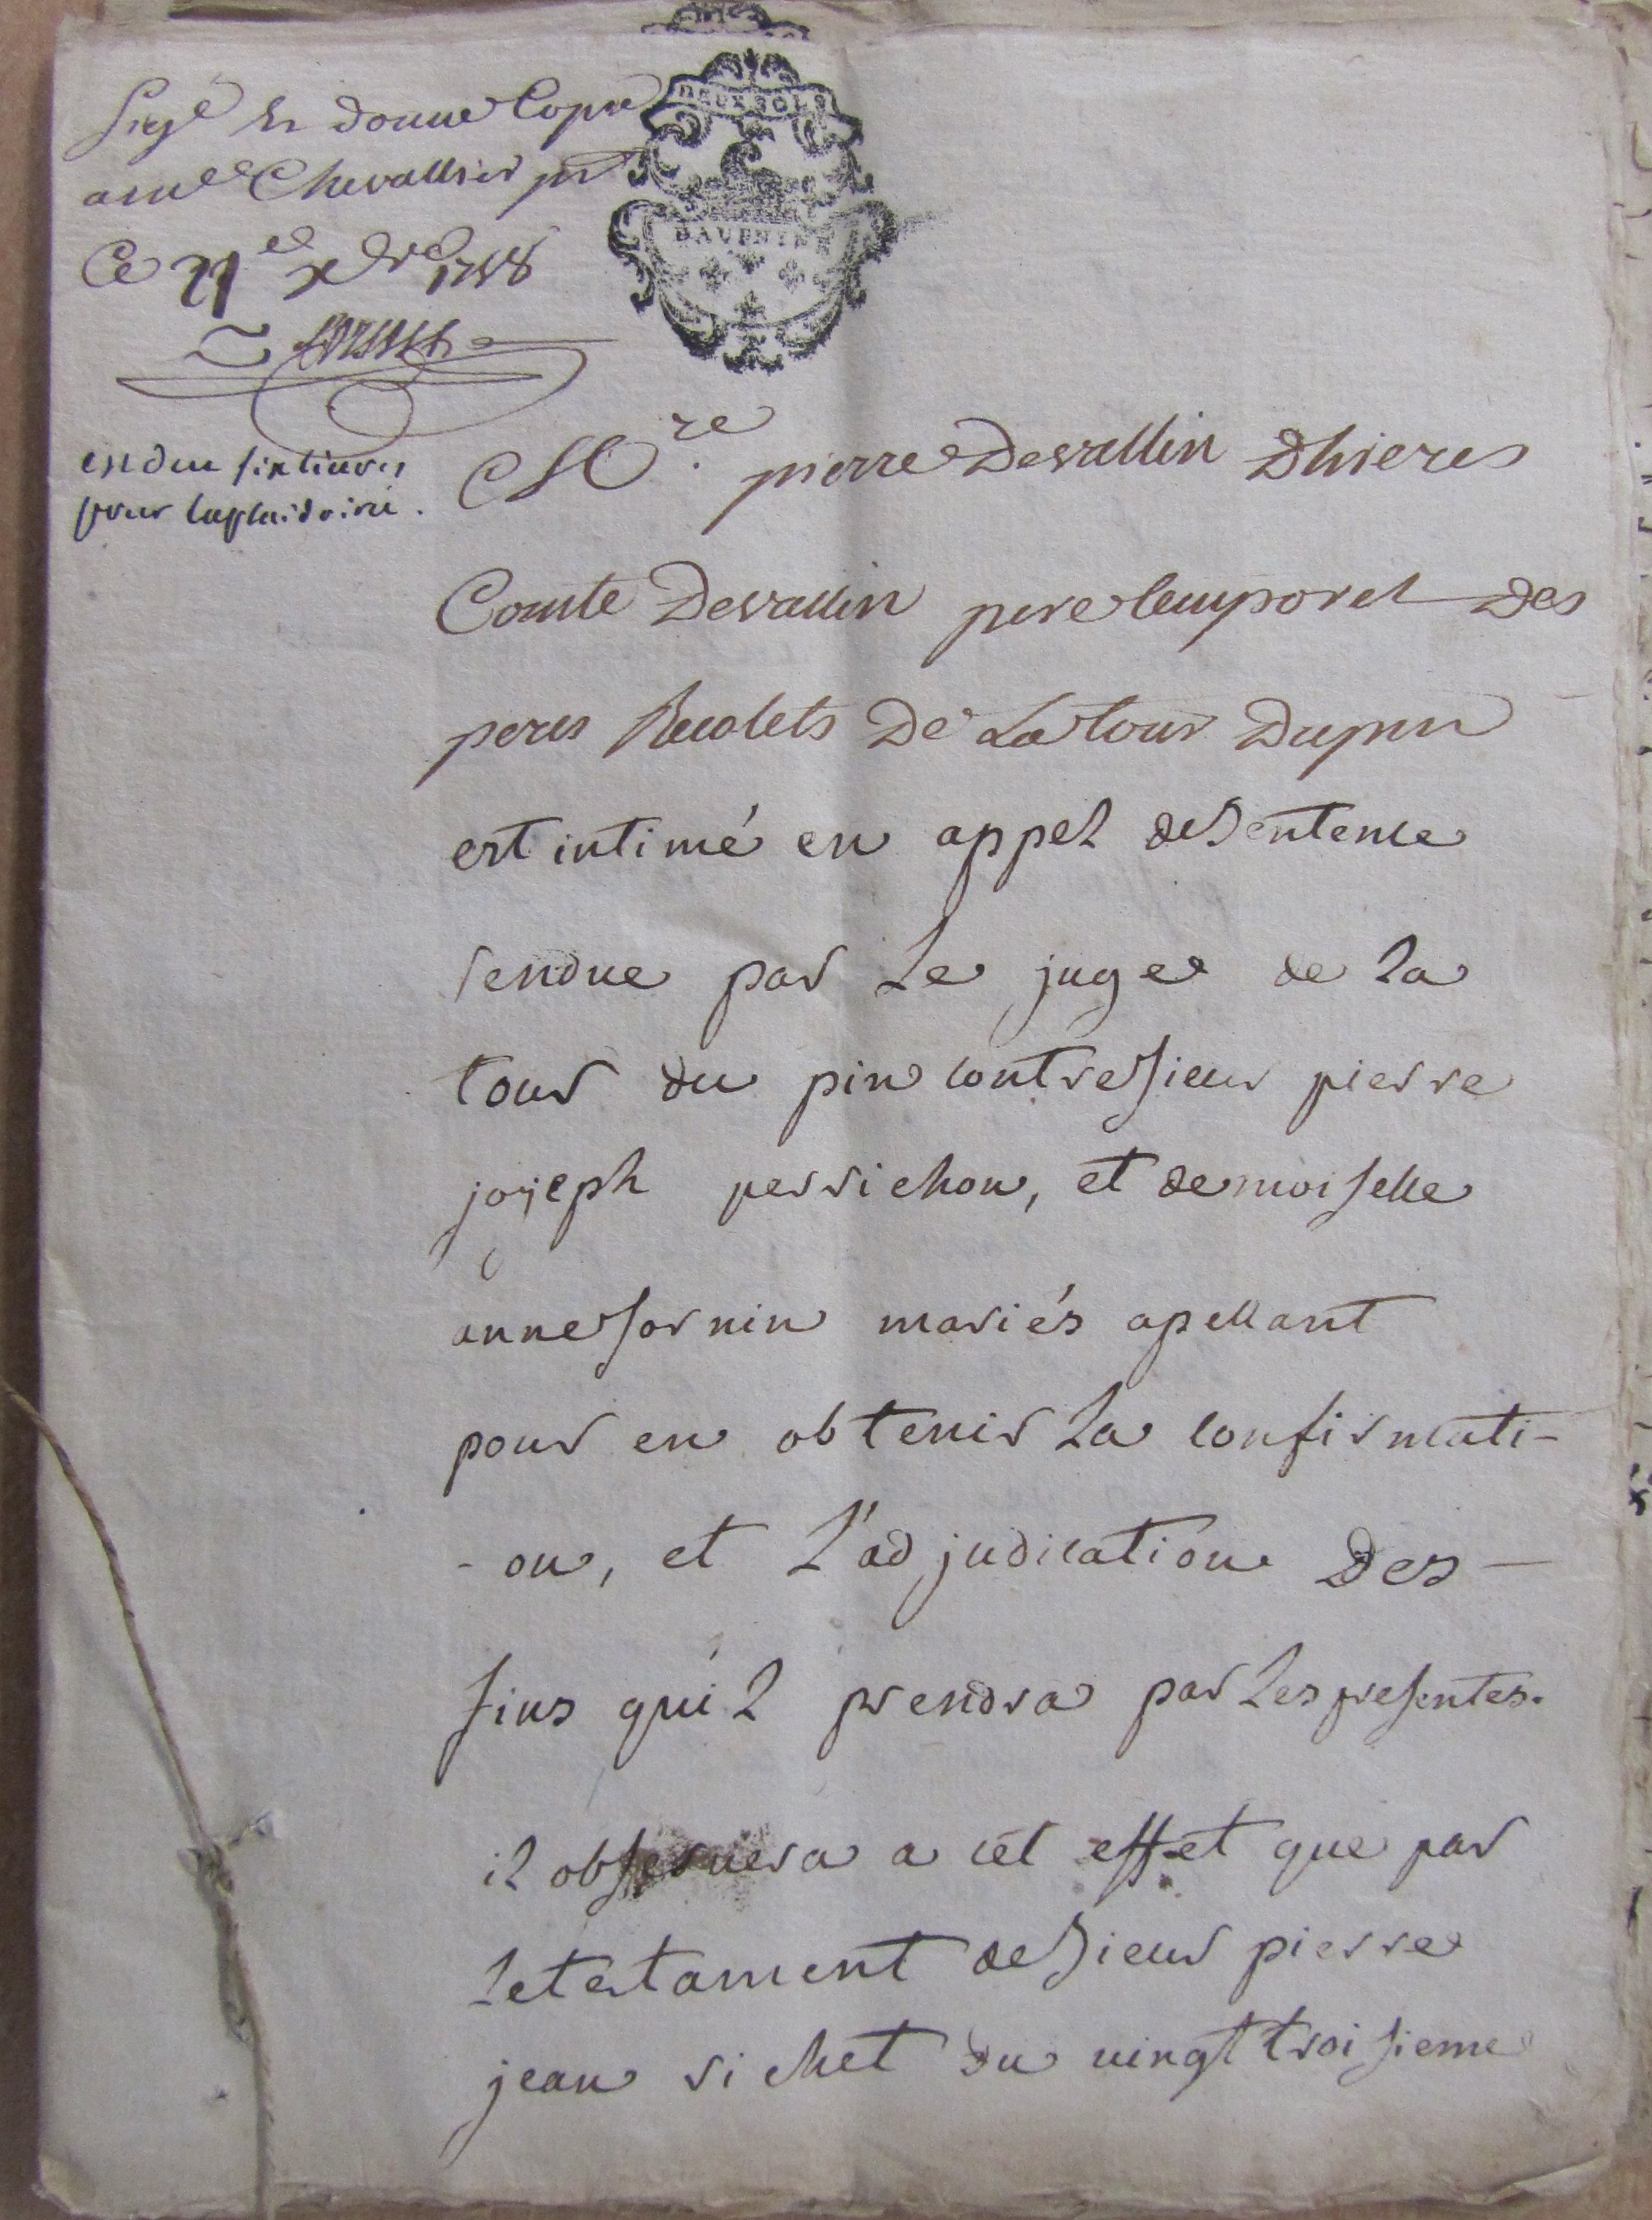 Sig.é et donné Copie
a me Chevallier pr
Ce 21e xbre 1758
est deu six livres
pour la plaidoirie.
DEUX SOLS
DAUPHINE
Mre. pierre Devallin Dhieres
Comte Devallin pere temporel Des
peres Recolets De La tour Dupin
est intimé en appel de Sentence
rendue par Le juge de La
tour du pin contre Sieur pierre
joseph perrichon, et demoiselle
anne sornin mariés apellant
pour en obtenir La confirmati-
-on, et L'adjudication Des
fins qu'il prendra par Les presentes.
il observera a cet effet que par
Le testament de Sieur pierre
jean richet du vingt troisieme